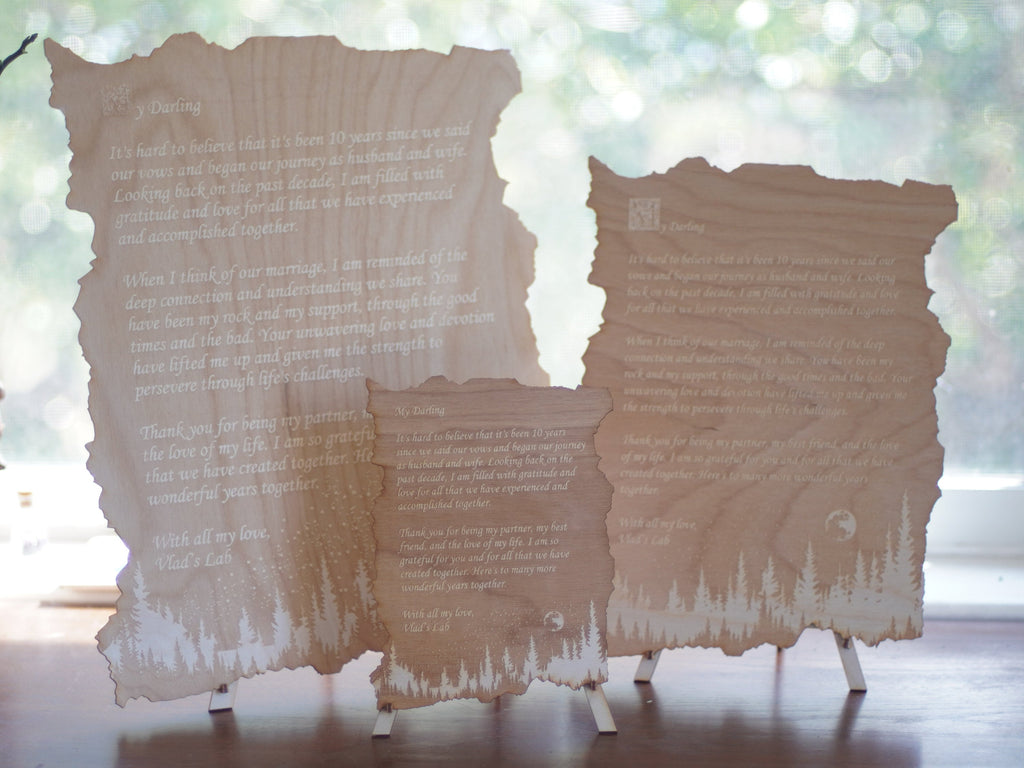 My Darling
It's hard to believe that it's been 10 years since we said
our vows and began our journey as husband and wife.
Looking back on the past decade, I am filled with
gratitude and love for all that we have experienced
and accomplished together.
When I think of our marriage, I am reminded of the
deep connection and understanding we share. You
have been my rock and my support, through the good
times and the bad. Your unwavering love and devotion
have lifted me up and given me the strength to
persevere through life's challenges.
Thank you for being my partner,
the love of my life. I am so
that we have created together.
wonderful years together.
With all my love,
Vlad's Lab
My Darling
It's hard to believe that it's been 10 years
since we said our vows and began our journey
as husband and wife. Looking back on the
past decade, I am filled with gratitude and
love for all that we have experienced and
accomplished together.
Thank you for being my partner, my best
friend, and the love of my life. I am so
grateful for you and for all that we have
created together. Here's to many more
wonderful years together.
With all my love,
Vlad's Lab
My Darling
It's hard to believe that it's been 10 years since we said our
vows and began our journey as husband and wife. Looking
back on the past decade, I am filled with gratitude and love
for all that we have experienced and accomplished together.
When I think of our marriage, I am reminded of the deep
connection and understanding we share. You have been my
rock and my support, through the good times and the bad. Your
unwavering love and devotion have lifted me up and given me
the strength to persevere through life's challenges.
Thank you for being my partner, my best friend, and the love
of my life. I am so grateful for you and for all that we have
created together. Here's to many more wonderful years
together.
With all my love,
Vlad's Lab